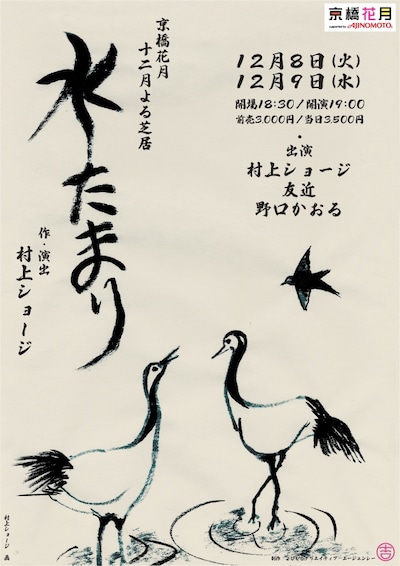 京橋花月
supported by AJINOMOTO
京橋花月
十二月よる芝居
水たまり
作・演出
村上ショージ
12月8日(火)
12月9日(水)
開場18:30/開演19:00
前売3,000円/当日3,500円
・
出演
村上ショージ
友近
野口かおる
村上ショージ 画
制作 よしもとクリエイティブ・エージェンシー
吉